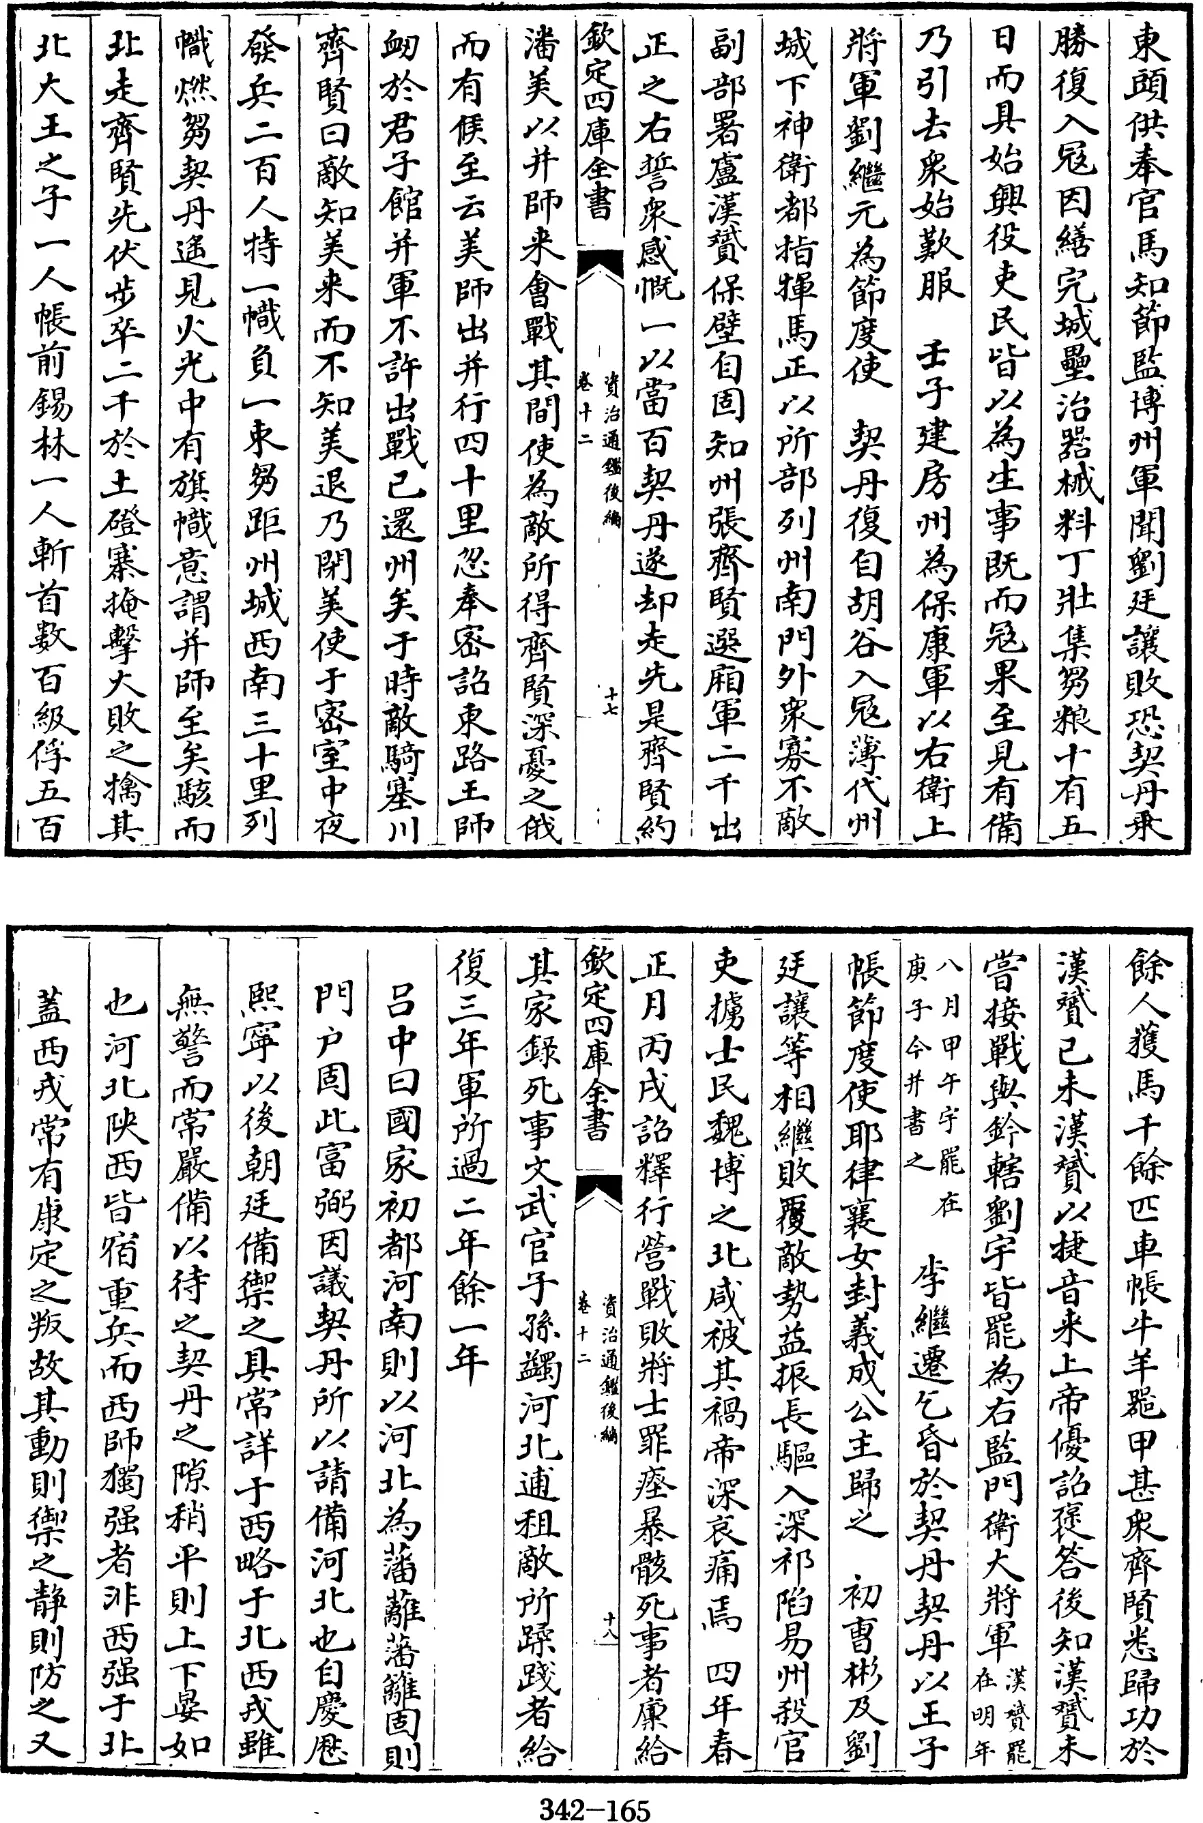 東頭供奉官馬知節監博州軍聞劉廷讓敗恐契丹乘
勝復入冦因繕完城壘治器械料丁壯集芻粮十有五
日而具始興役吏民皆以為生事既而冦果至見有備
乃引去衆始歎服　壬子建房州為保康軍以右衛上
將軍劉繼元為節度使　契丹復自胡谷入冦薄代州
城下神衛都指揮馬正以所部列州南門外衆寡不敵
副部署盧漢贇保壁自固知州張齊賢選廂軍二千出
正之右誓衆感慨一以當百契丹遂却走先是齊賢約
欽定四庫全書
資治通鑑後編
卷十二
十七
潘美以并師来會戰其間使為敵所得齊賢深憂之俄
而有候至云美師出并行四十里忽奉密詔東路王師
衂於君子館并軍不許出戰已還州矣于時敵騎塞川
齊賢曰敵知美来而不知美退乃閉美使于密室中夜
發兵二百人持一幟負一束芻距州城西南三十里列
幟燃芻契丹遙見火光中有旗幟意謂并師至矣駭而
北走齊賢先伏步卒二千於土磴寨掩擊大敗之擒其
北大王之子一人帳前錫林一人斬首數百級俘五百
餘人獲馬千餘匹車帳牛羊器甲甚衆齊賢悉歸功於
漢贇已未漢贇以捷音来上帝優詔褒答後知漢贇未
嘗接戰與鈐轄劉宇皆罷為右監門衛大將軍漢贇罷
在明年
八月甲午宇罷在
庚子今并書之
李繼遷乞昏於契丹契丹以王子
帳節度使耶律襄女封義成公主歸之　初曹彬及劉
廷讓等相繼敗覆敵勢益振長驅入深祁陷易州殺官
吏擄士民魏博之北咸被其禍帝深哀痛焉　四年春
正月丙戌詔釋行營戰敗將士罪瘞暴骸死事者廪給
欽定四庫全書
資治通鑑後編
卷十二
十八
其家錄死事文武官子孫蠲河北逋租敵所蹂踐者給
復三年軍所過二年餘一年
吕中曰國家初都河南則以河北為藩籬藩籬固則
門户固此富弼因議契丹所以請備河北也自慶厯
熙寧以後朝廷備禦之具常詳于西略于北西戎雖
無警而常嚴備以待之契丹之隙稍平則上下晏如
也河北陜西皆宿重兵而西師獨强者非西强于北
蓋西戎常有康定之叛故其動則禦之静則防之又
342-165